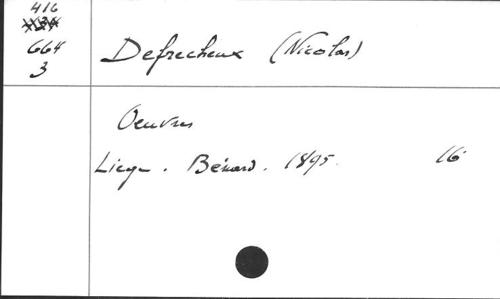 416
664
3
Defrecheux (Nicolas)
Oeuvres
Liége. Bénard. 1895. 16°